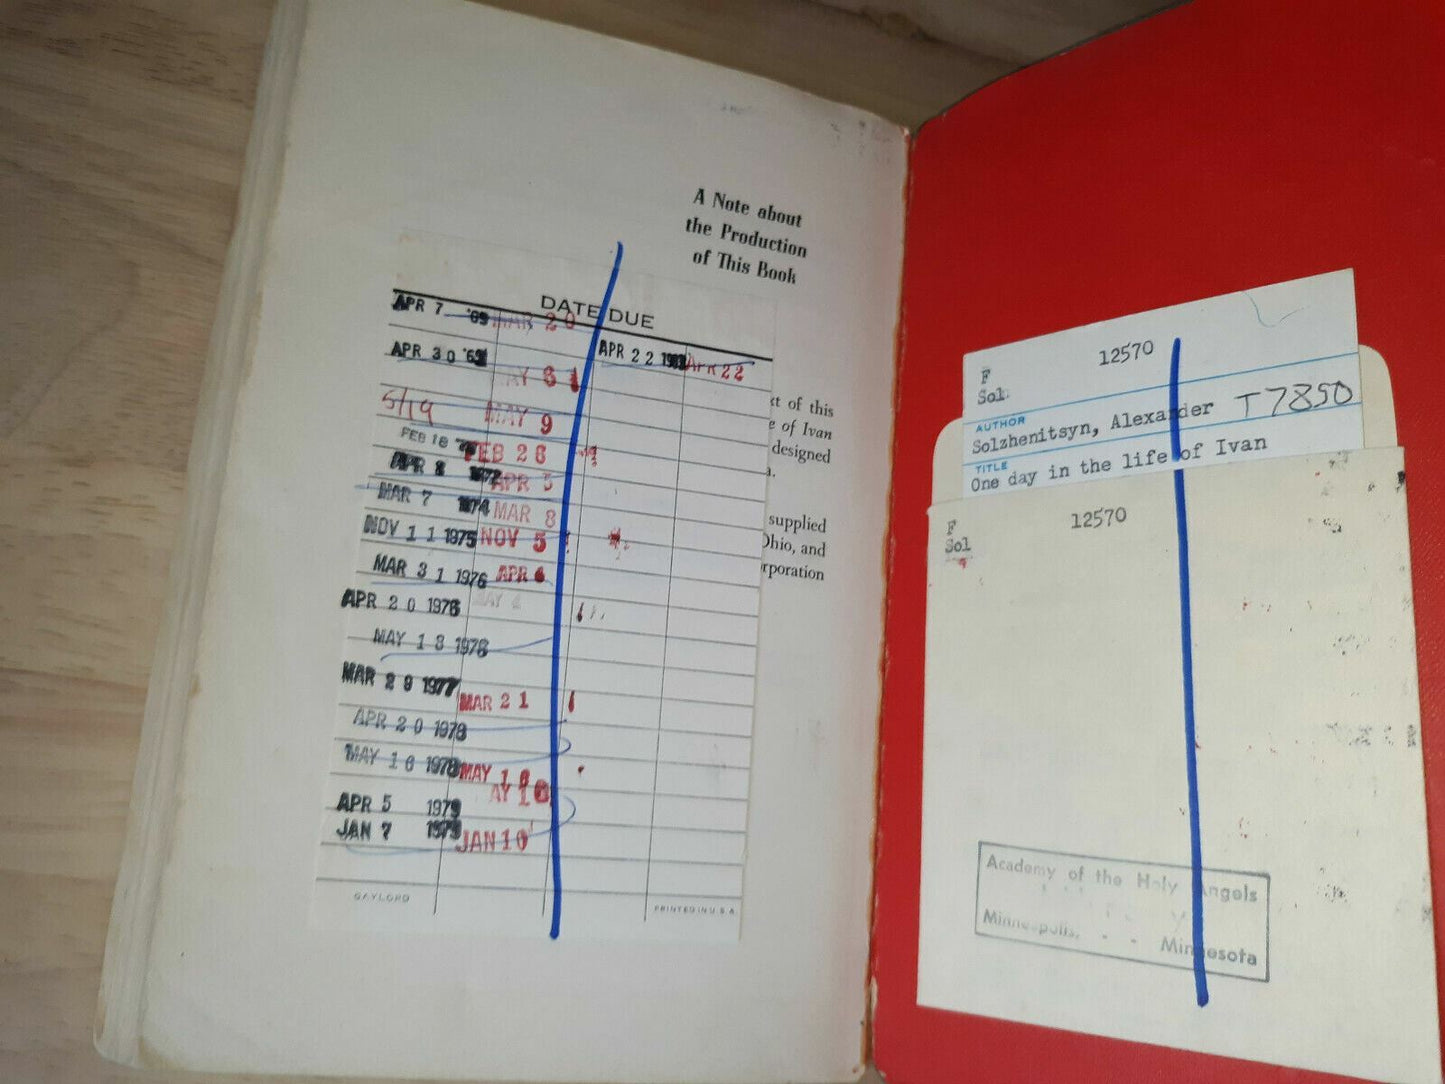 A Note about
the Production
of This Book
DATE DUE
APR 7 '69 MAR 20
APR 30 '69
APR 22 APR 22
5/19 MAY 9
FEB 18 FEB 28
APR 8 1972 APR 5
MAR 7 1974 MAR 8
NOV 11 1975 NOV 5
MAR 31 1976 APR
APR 20 1976 MAY 4
MAY 18 1976
MAR 28 1977 MAR 21
APR 20 1978
MAY 16 1978 MAY 16
AY 16
APR 5 1979
JAN 7 1979 JAN 10
GAYLORD
PRINTED IN U.S.A.
of this
of Ivan
designed
supplied
Ohio, and
F 12570
Sol
AUTHOR
Solzhenitsyn, Alexander T7850
TITLE
One day in the life of Ivan
F 12570
Sol
Academy of the Holy Angels
Minneapolis, - - Minnesota